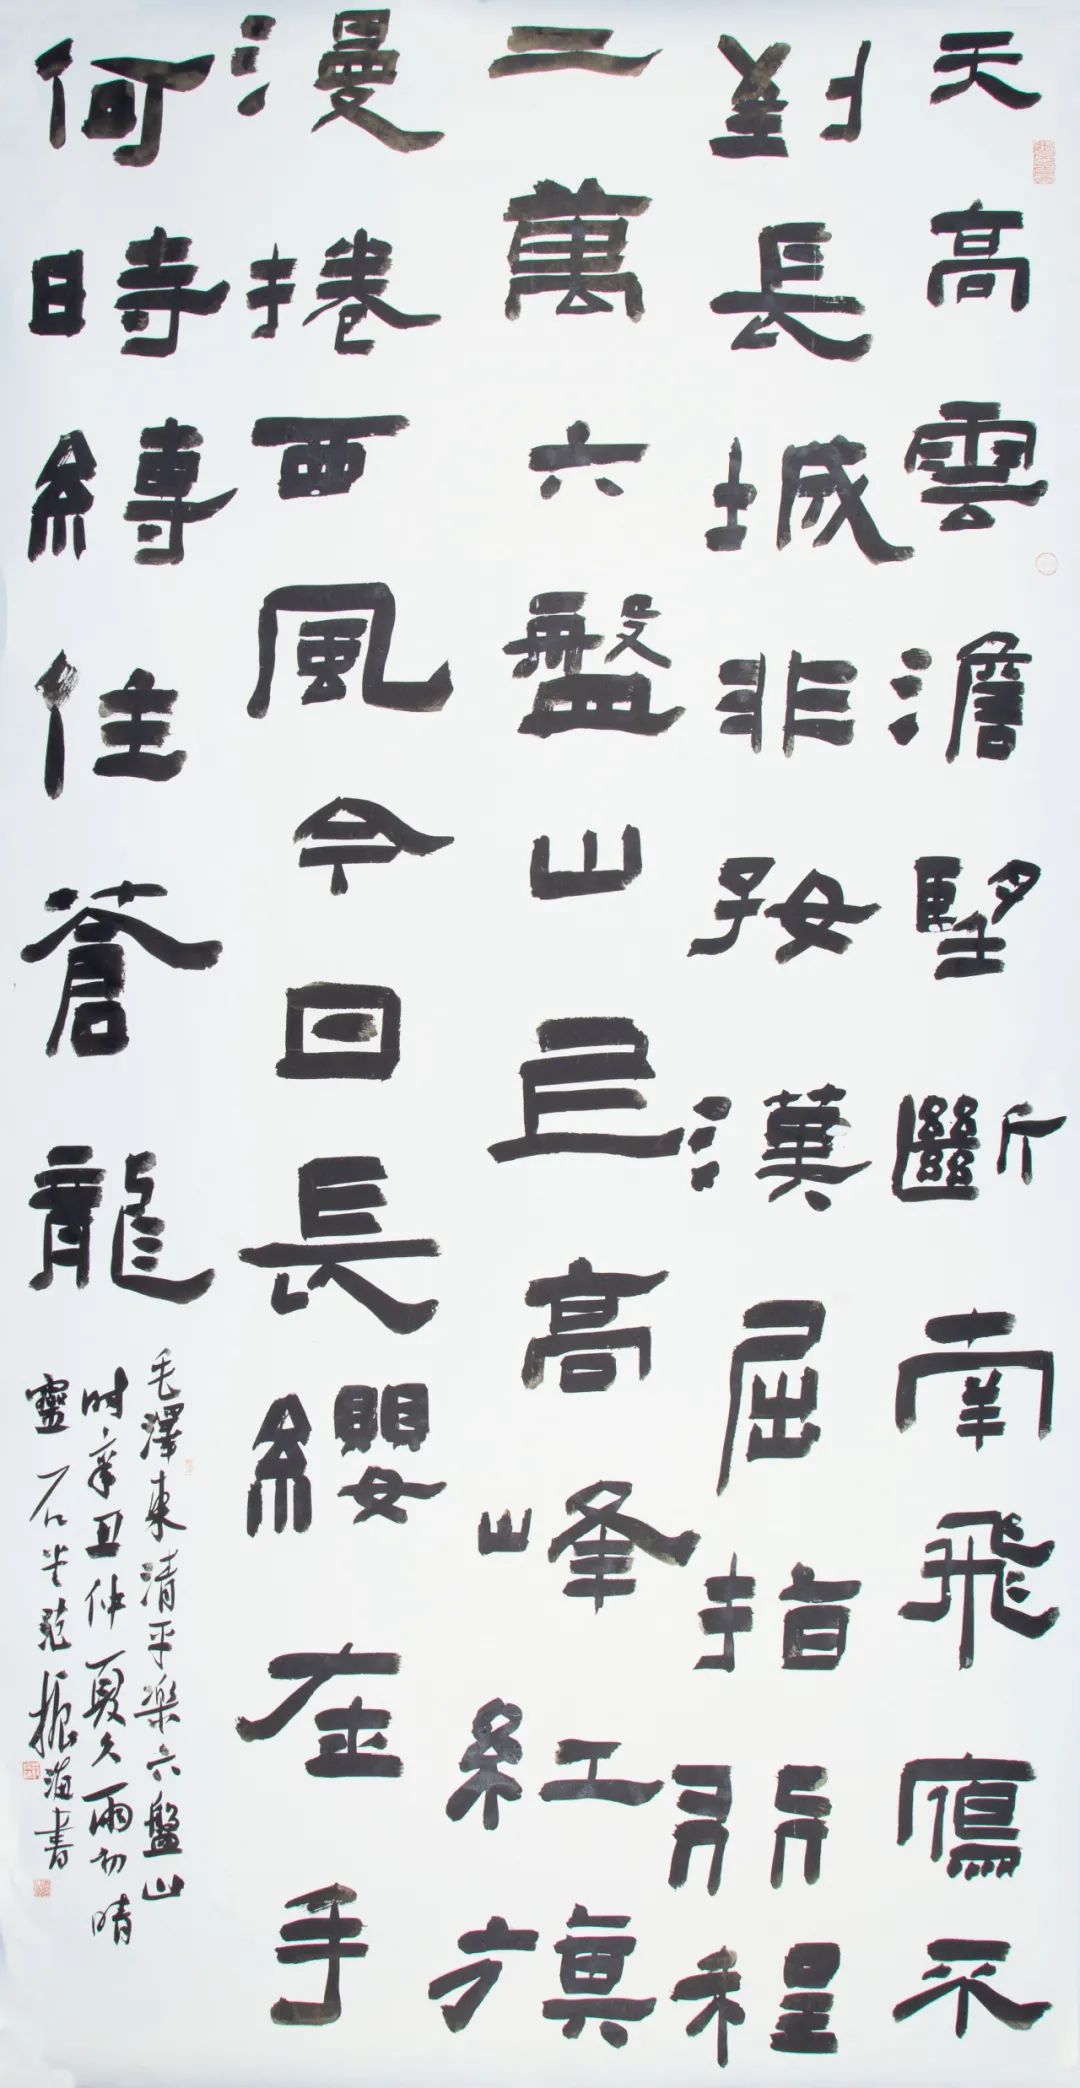 天高雲澹望斷南飛鴈不
到長城非好漢屈指行程
二萬六盤山上高峰紅旗
漫捲西風今日長纓在手
何時縛住蒼龍
毛澤東清平樂六盤山
时辛丑仲夏久雨初晴
靈石范振海書